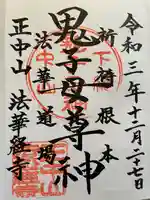 令和三年十二月二十七日
祈禱根本
鬼子母尊神
法華道場
正中山 法華経寺